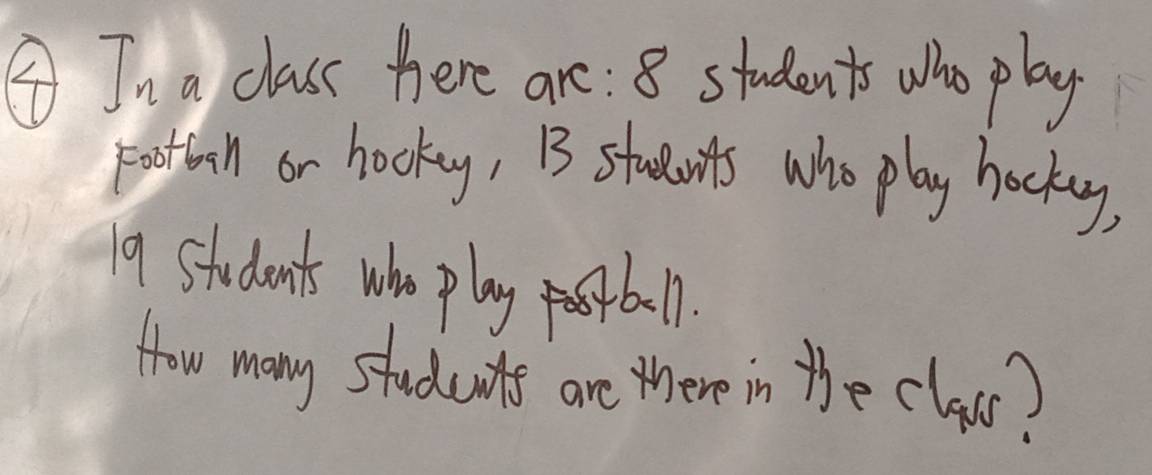 ④ In a class there are: 8 students who play
football or hockey, 13 students who play hockey,
19 students who play football.
How many students are there in the class?